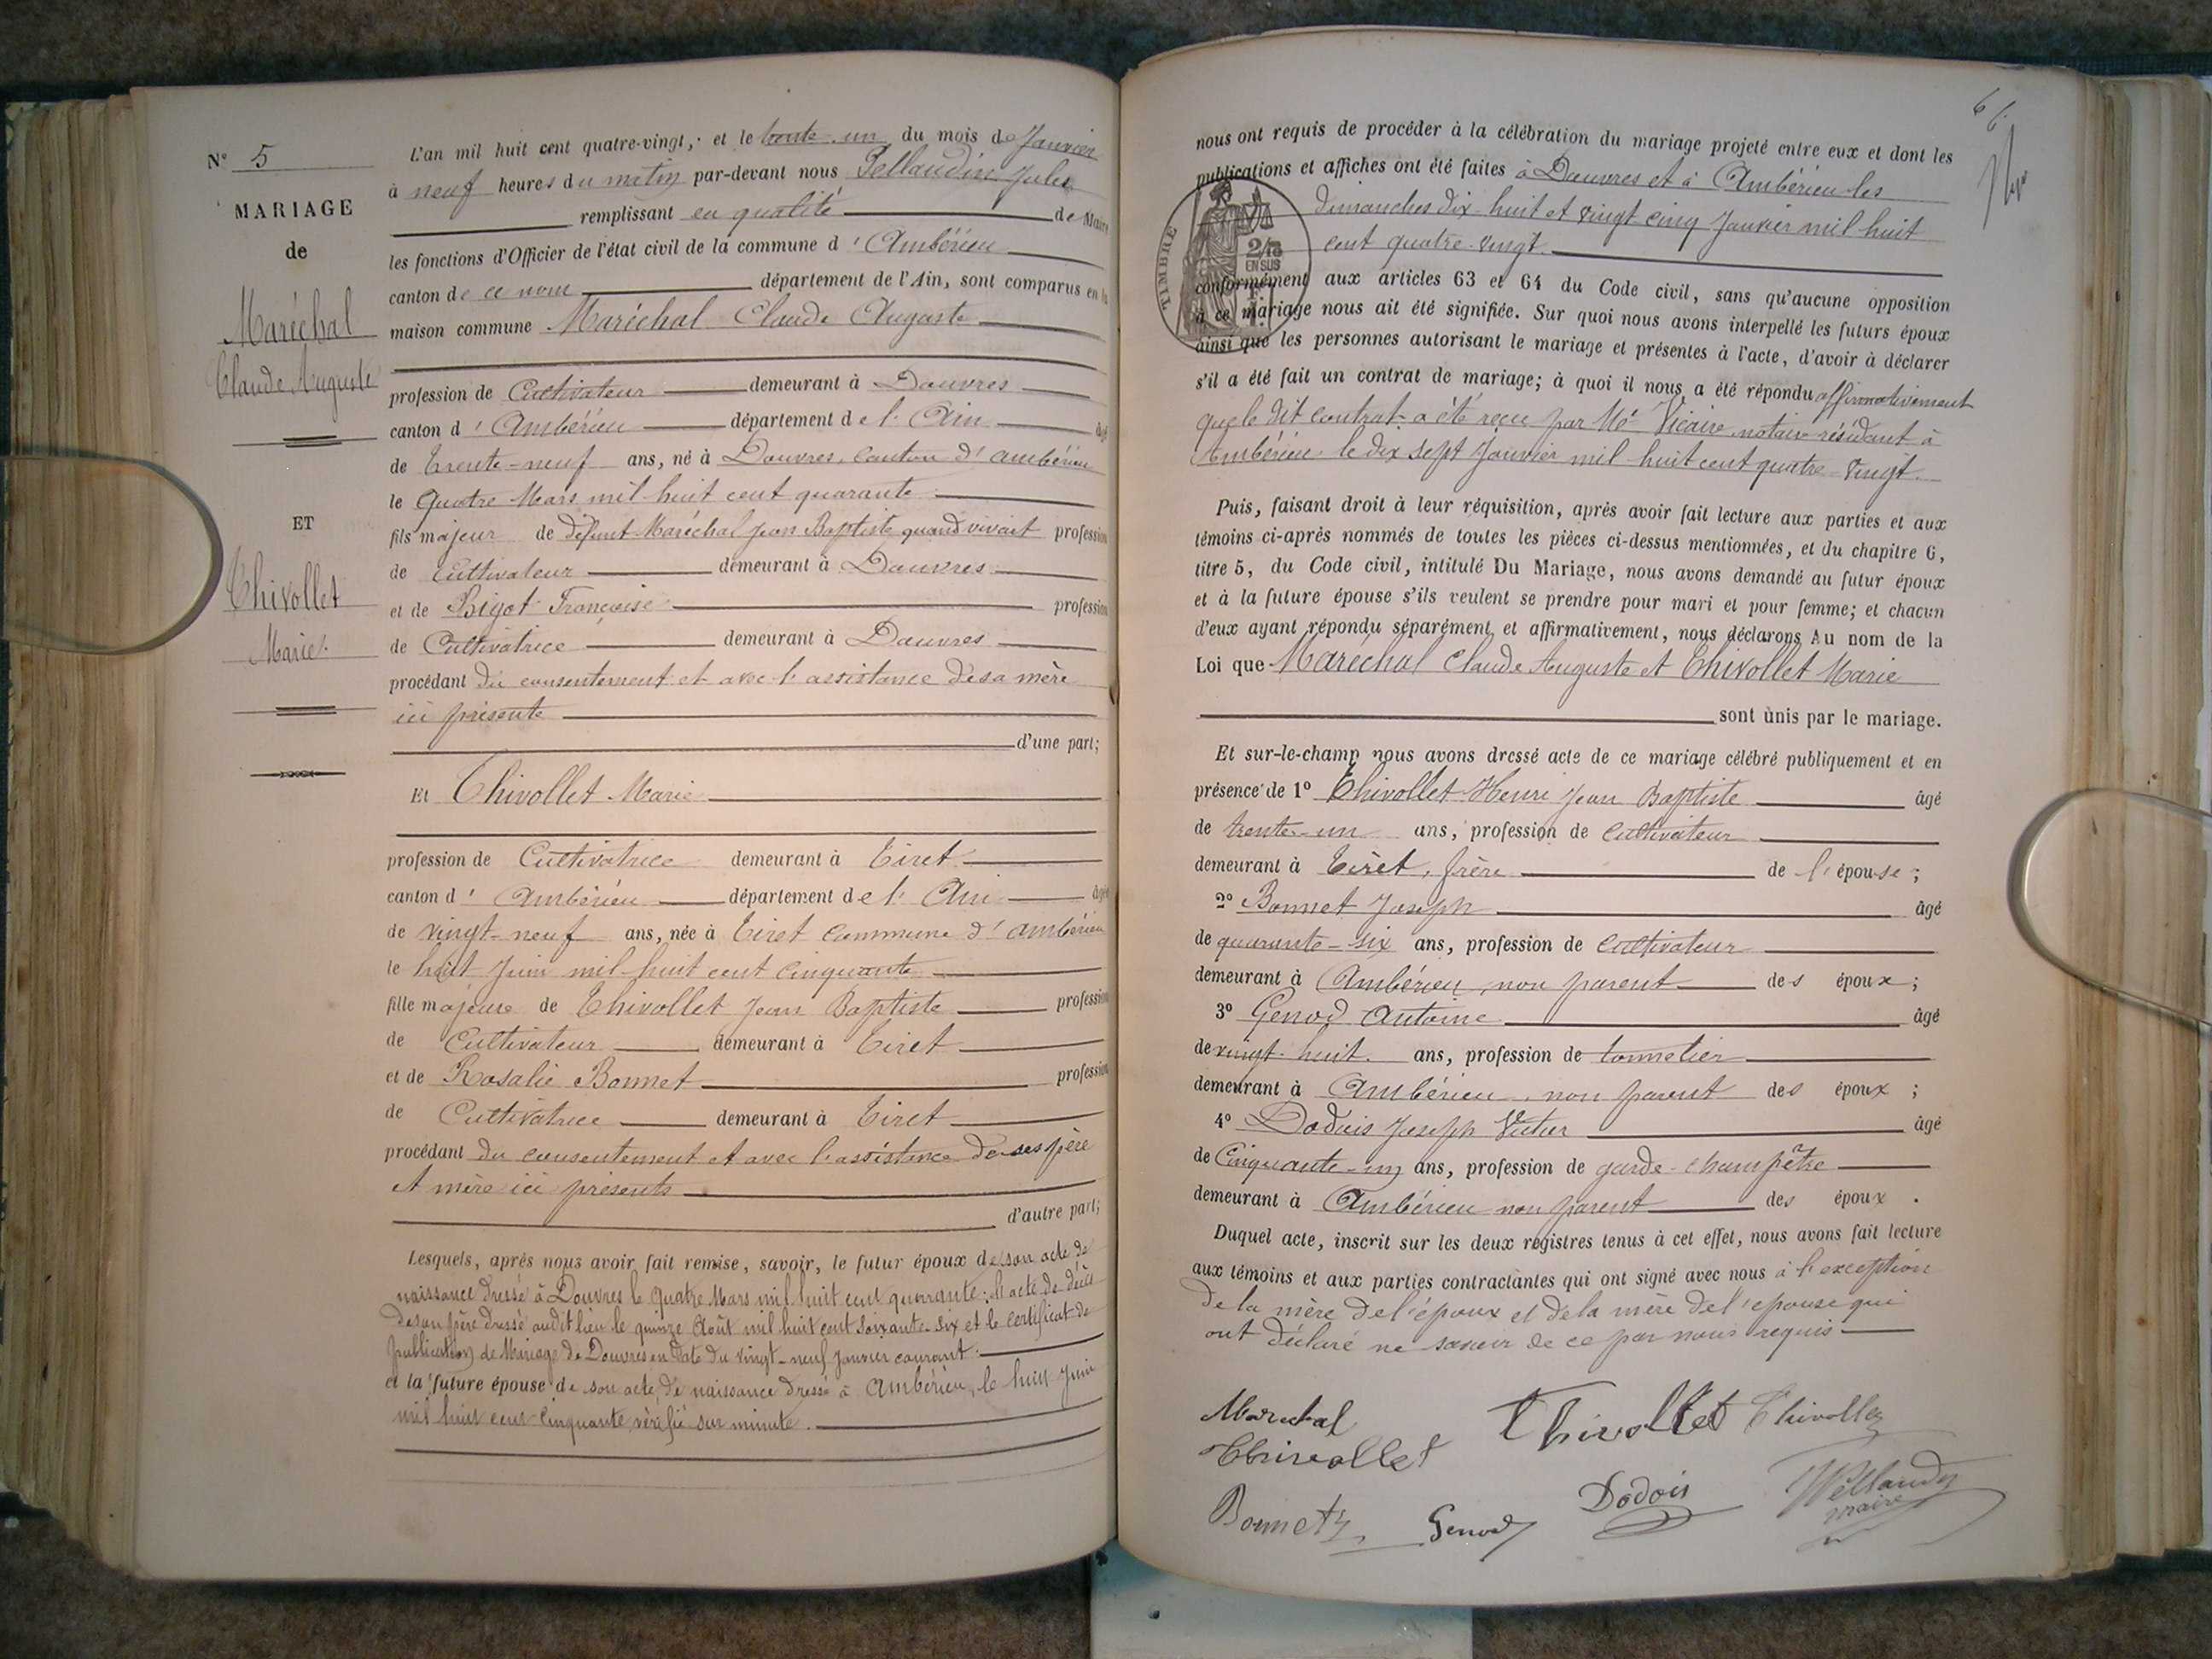 N° 5
MARIAGE
de
Maréchal
Claude Auguste
ET
Thivollet
Marie
L'an mil huit cent quatre-vingt, et le trente-un du mois de Janvier
à neuf heures du matin par-devant nous Pellaudin Jules
remplissant en qualité de Maire
les fonctions d'Officier de l'état civil de la commune d'Ambérieu
canton de ce nom département de l'Ain, sont comparus en la
maison commune Maréchal Claude Auguste
profession de Cultivateur demeurant à Douvres
canton d'Ambérieu département de l'Ain âgé
de trente-neuf ans, né à Douvres, canton d'ambérieu
le Quatre Mars mil huit cent quarante
fils majeur de défunt Maréchal Jean Baptiste quand vivait profession
de Cultivateur demeurant à Douvres
et de Bigot Françoise profession
de Cultivatrice demeurant à Douvres
procédant du consentement et avec l'assistance de sa mère
ici présente
d'une part;
Et Thivollet Marie
profession de Cultivatrice demeurant à Tiret
canton d'Ambérieu département de l'Ain âgée
de vingt-neuf ans, née à Tiret Commune d'ambérieu
le huit Juin mil huit cent cinquante
fille majeure de Thivollet Jean Baptiste profession
de Cultivateur demeurant à Tiret
et de Rosalie Bonnet profession
de Cultivatrice demeurant à Tiret
procédant du consentement et avec l'assistance de ses père
et mère ici présents
d'autre part;
Lesquels, après nous avoir fait remise, savoir, le futur époux de son acte de
naissance dressé à Douvres le Quatre Mars mil huit cent quarante; l'acte de décès
de son père dressé audit lieu le quinze Août mil huit cent soixante-six et le certificat de
publication de Mariage de Douvres en date du vingt-neuf Janvier courant.
et la future épouse de son acte de naissance dressé à Ambérieu, le huit Juin
mil huit cent cinquante vérifié sur minute.
nous ont requis de procéder à la célébration du mariage projeté entre eux et dont les
publications et affiches ont été faites à Douvres et à Ambérieu les
dimanches dix-huit et vingt-cinq Janvier mil huit
cent quatre-vingt.
TIMBRE
2/10
EN SUS
conformément aux articles 63 et 64 du Code civil, sans qu'aucune opposition
à ce mariage nous ait été signifiée. Sur quoi nous avons interpellé les futurs époux
ainsi que les personnes autorisant le mariage et présentes à l'acte, d'avoir à déclarer
s'il a été fait un contrat de mariage; à quoi il nous a été répondu affirmativement
que le dit contrat a été reçu par Me Vicaire notaire résidant à
Ambérieu le dix sept Janvier mil huit cent quatre-vingt.
Puis, faisant droit à leur réquisition, après avoir fait lecture aux parties et aux
témoins ci-après nommés de toutes les pièces ci-dessus mentionnées, et du chapitre 6,
titre 5, du Code civil, intitulé Du Mariage, nous avons demandé au futur époux
et à la future épouse s'ils veulent se prendre pour mari et pour femme; et chacun
d'eux ayant répondu séparément et affirmativement, nous déclarons Au nom de la
Loi que Maréchal Claude Auguste et Thivollet Marie
sont unis par le mariage.
Et sur-le-champ nous avons dressé acte de ce mariage célébré publiquement et en
présence de 1° Thivollet Henri Jean Baptiste âgé
de trente-un ans, profession de Cultivateur
demeurant à Tiret, frère de l'épouse;
2° Bonnet Joseph âgé
de quarante-six ans, profession de cultivateur
demeurant à Ambérieu, non parent des époux;
3° Genod Antoine âgé
de vingt-huit ans, profession de tonnelier
demeurant à Ambérieu, non parent des époux;
4° Dodois Joseph Victor âgé
de Cinquante-un ans, profession de garde-champêtre
demeurant à Ambérieu non parent des époux.
Duquel acte, inscrit sur les deux registres tenus à cet effet, nous avons fait lecture
aux témoins et aux parties contractantes qui ont signé avec nous à l'exception
de la mère de l'époux et de la mère de l'épouse qui
ont déclaré ne savoir de ce par nous requis
Marechal Thivollet Thivollet
Thivollet
Bonnet Genod Dodois Pellaudin
maire